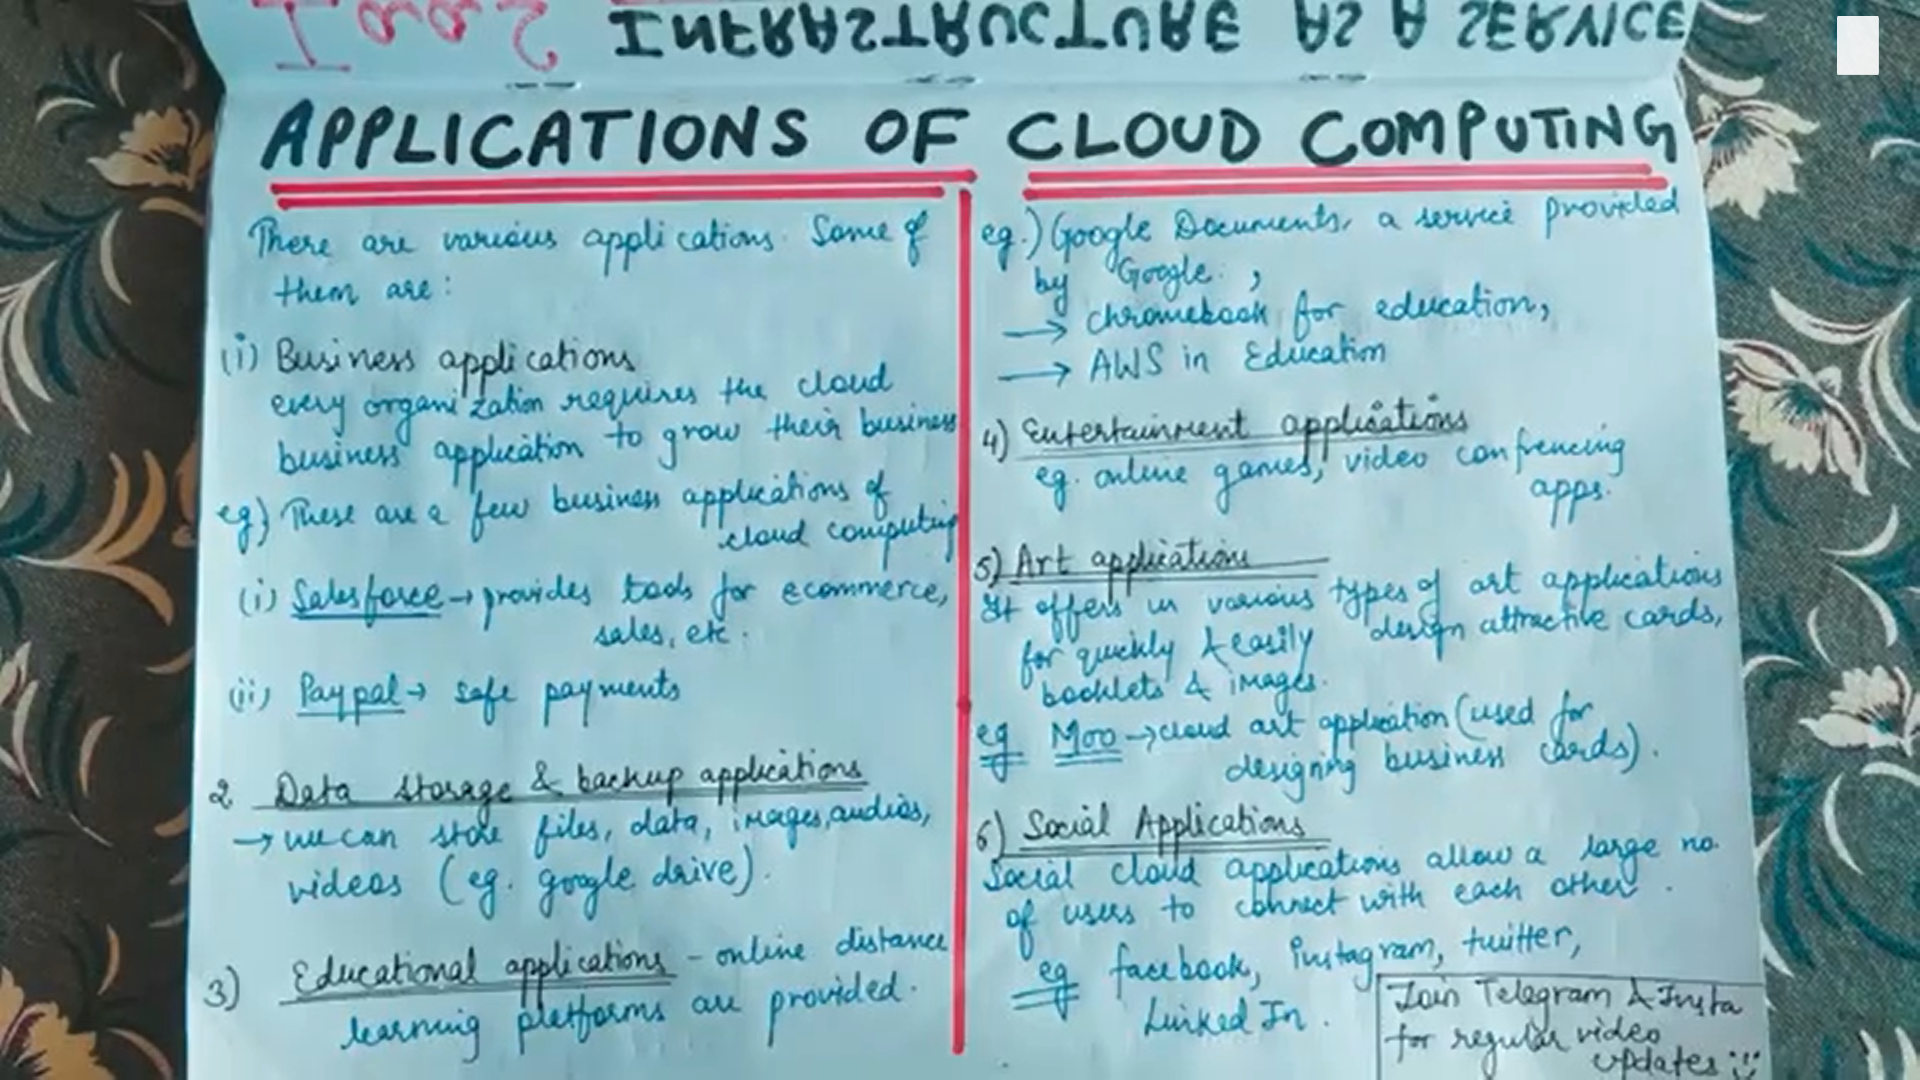 INFRASTRUCTURE AS A SERVICE
APPLICATIONS OF CLOUD COMPUTING
There are various applications. Some of
them are:
(i) Business applications
every organization requires the cloud
business application to grow their business
eg) These are a few business applications of
cloud computing
(i) Salesforce → provides tools for ecommerce,
sales, etc.
(ii) Paypal → safe payments
2 Data storage & backup applications
→ we can store files, data, images, audios,
videos (eg. google drive).
3) Educational applications - online distance
learning platforms are provided.
eg.) Google Documents, a service provided
by Google. ,
→ chromebook for education,
→ AWS in Education
4) Entertainment applications
eg. online games, video confrencing
apps.
5) Art applications
It offers us various types of art applications
for quickly & easily design attractive cards,
booklets & images.
eg Moo → cloud art application (used for
designing business cards).
6) Social Applications
Social cloud applications allow a large no.
of users to connect with each other.
eg facebook, instagram, twitter,
Linked In.
Join Telegram & Insta
for regular video
updates